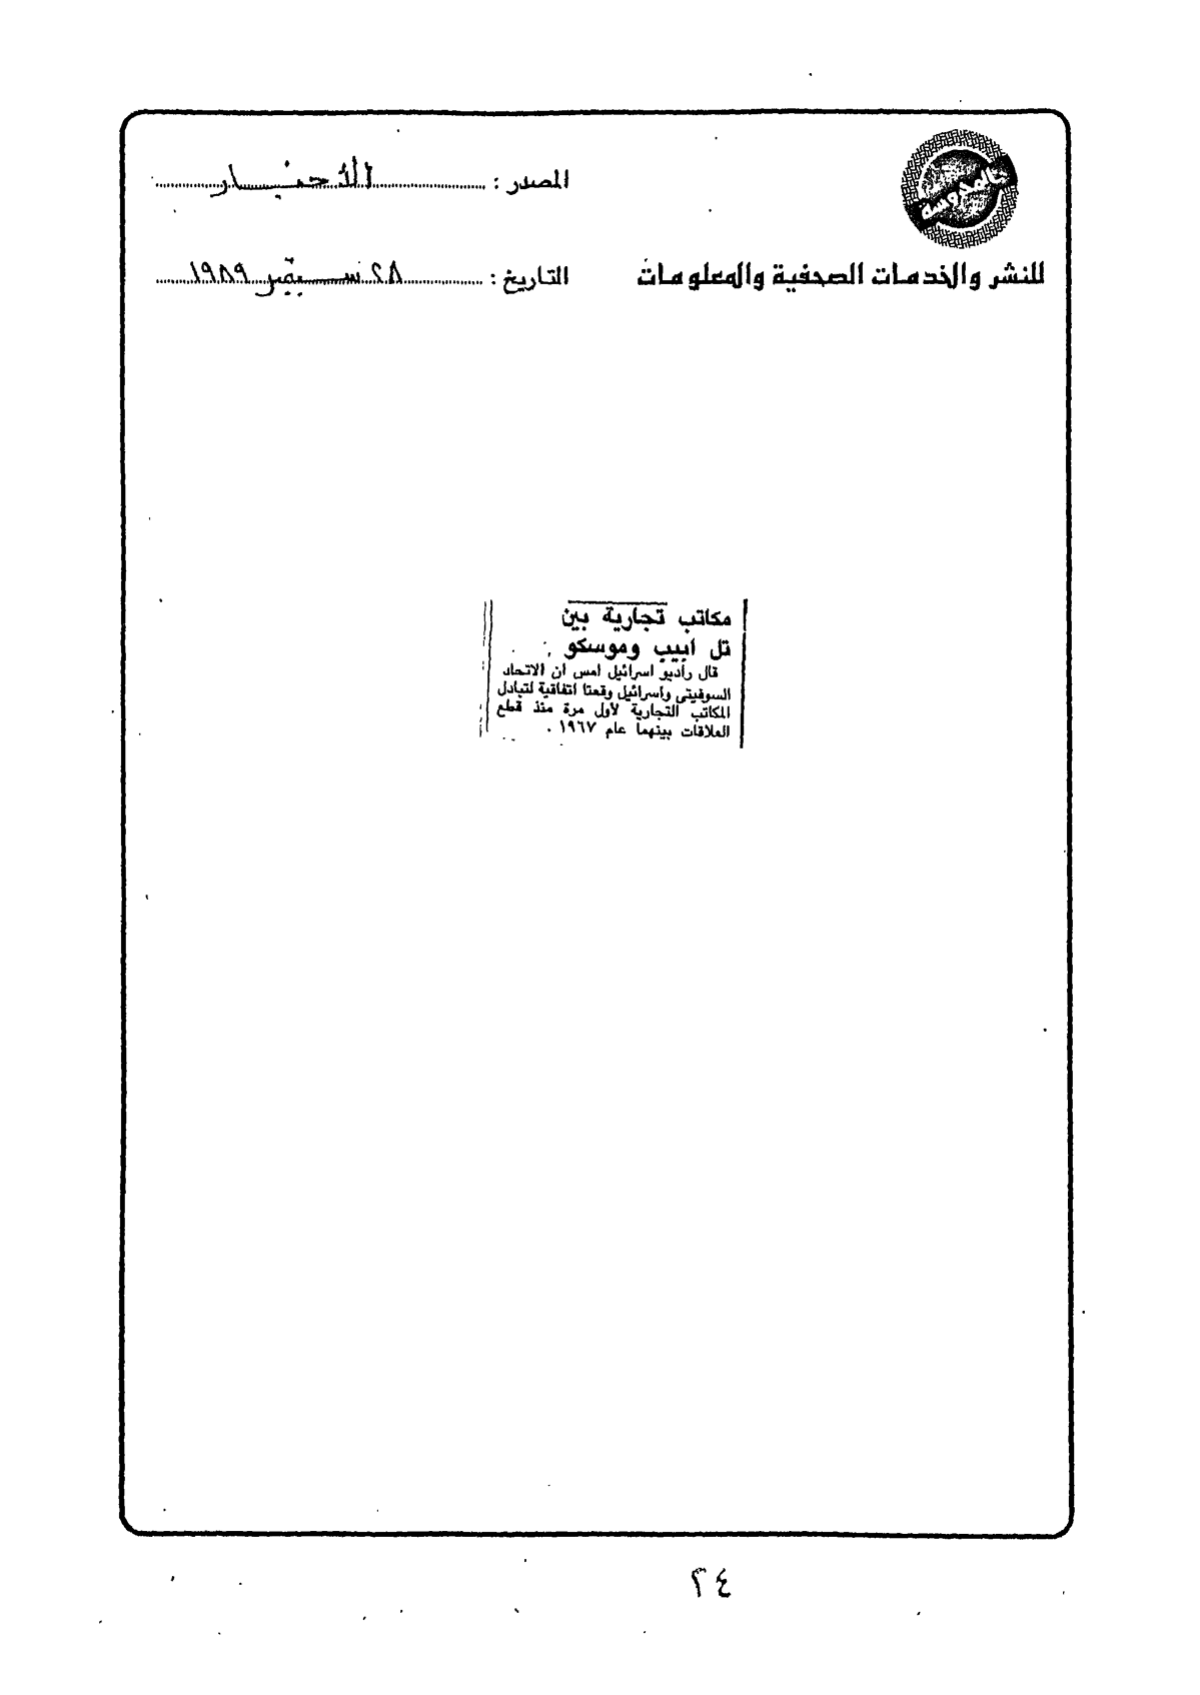 المحروسة
للنشر والخدمات الصحفية والمعلومات
المصدر : الأخبار
التاريخ : ٢٨ سبتمبر ١٩٨٩
مكاتب تجارية بين
تل أبيب وموسكو
قال راديو اسرائيل امس ان الاتحاد
السوفيتى واسرائيل وقعتا اتفاقية لتبادل
المكاتب التجارية لأول مرة منذ قطع
العلاقات بينهما عام ١٩٦٧ .
٢٤